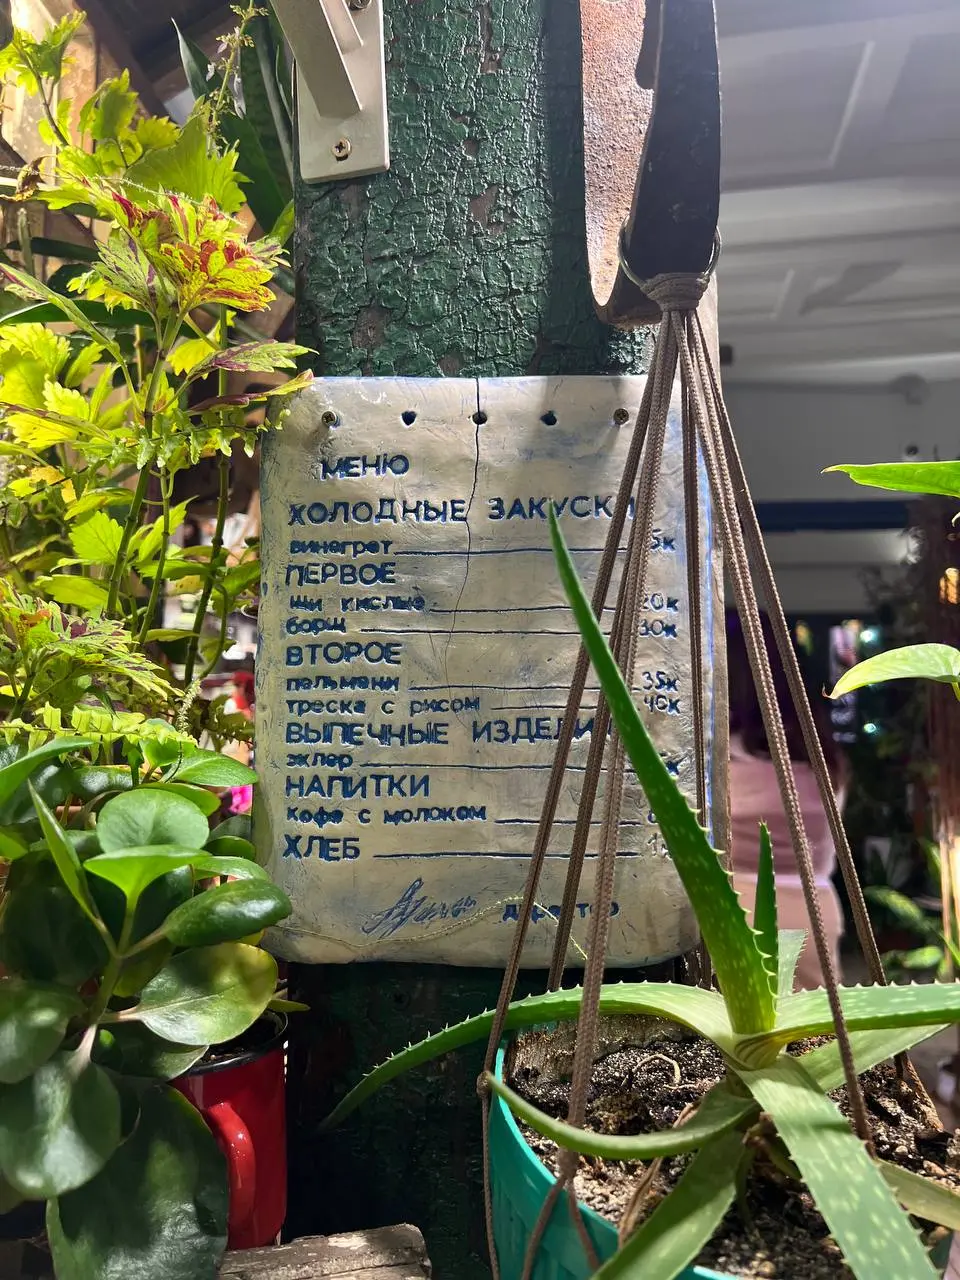 МЕНЮ
ХОЛОДНЫЕ ЗАКУСКИ
винегрет 5к
ПЕРВОЕ
щи кислые
борщ
ВТОРОЕ
пельмени 35к
треска с рисом
ВЫПЕЧНЫЕ ИЗДЕЛИЯ
эклер
НАПИТКИ
кофе с молоком
ХЛЕБ
директор